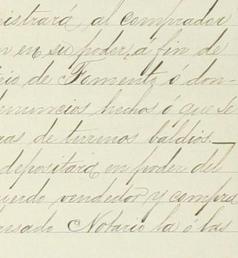 nistrará, al comprador
n en su poder, a fin de
rio de Fomento ó don-
denuncios hechos ó que se
gas de terrenos baldios
depositara en poder del
uerdo vendedor y compra
nsado Notario la ó las